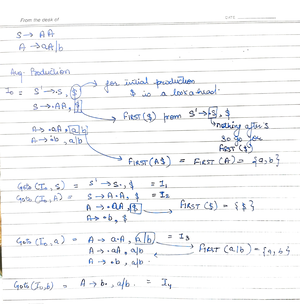 From the desk of
DATE
S → AA
A → aA/b
Aug. Production
I₀ = S' → .S, $
for initial production
$ is a lookahead.
S → .AA, $
FIRST($) from S' → .S, $
nothing after S
so go for
FIRST($)
A → .aA, a/b
A → .b, a/b
FIRST(A$) = FIRST(A) = {a,b}
Goto (I₀, S) = S' → S., $ = I₁
Goto (I₀, A) = S → A.A, $ = I₂
A → .aA, $
FIRST($) = {$}
A → .b, $
Goto (I₀, a) = A → a.A, a/b = I₃
A → .aA, a/b
FIRST(a/b) = {a,b}
A → .b, a/b
Goto (I₀, b) = A → b., a/b = I₄